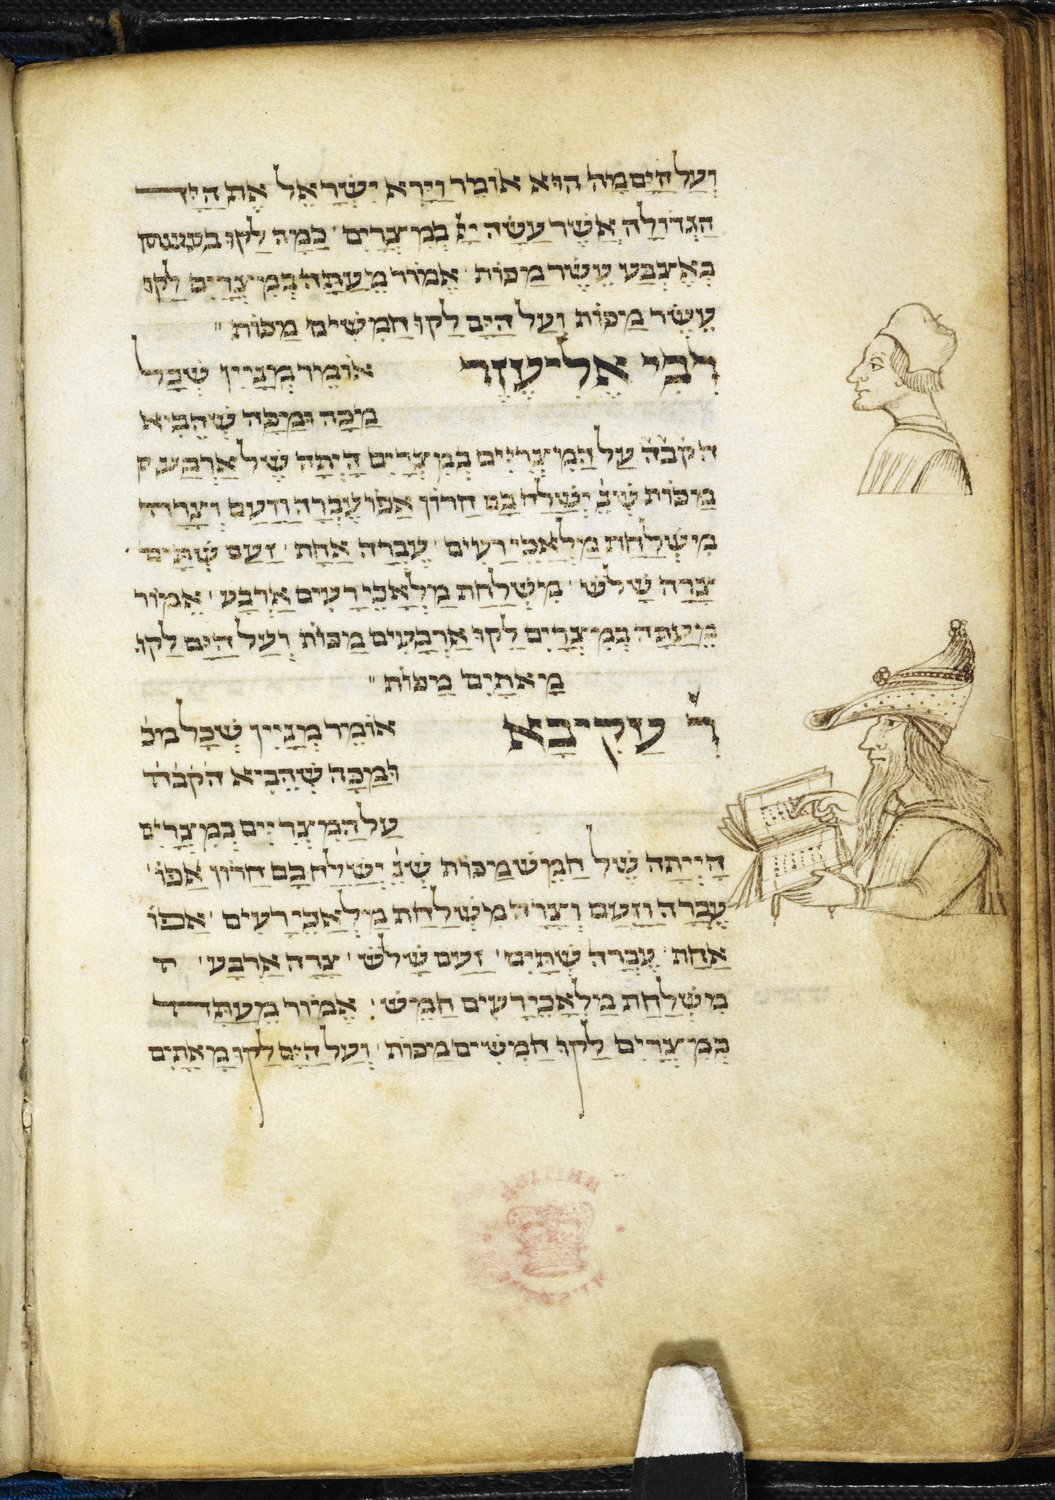 וְעַל הַיָם מַה הוּא אוֹמֵר וַיַרְא יִשְׂרָאֵל אֶת הַיָד
הַגְדוֹלָה אֲשֶׁר עָשָׂה יְיָ בְמִצְרַיִם ׳ כַמָה לָקוּ
כְאֶצְבַּע עֶשֶׂר מַכּוֹת ׳ אֱמוֹר מֵעַתָּה בְמִצְרַיִם לָקוּ
עֶשֶׂר מַכּוֹת וְעַל הַיָם לָקוּ חֲמִשִׁים מַכּוֹת ״
רַבִי אֱלִיעֶזֶר אוֹמֵר מְנַיִין שֶׁכָל
מַכָּה וּמַכָּה שֶׁהֵבִיא
הקבה עַל הַמִצְרִיִים בְמִצְרַיִם הָיְתָה שֶׁל אַרְבַּע
מַכּוֹת שׁנ׳ יְשַׁלַח בָּם חֲרוֹן אַפּוֹ עֶבְרָה וָזַעַם וְצָרָה
מִשְׁלַחַת מַלְאֲכֵי רָעִים ׳ עֶבְרָה אַחַת ׳ זַעַם שְׁתַּיִם ׳
צָרָה שָׁלֹשׁ ׳ מִשְׁלַחַת מַלְאֲכֵי רָעִים אַרְבַּע ׳ אֱמוֹר
מֵעַתָּה בְמִצְרַיִם לָקוּ אַרְבָּעִים מַכּוֹת וְעַל הַיָם לָקוּ
מָאתַיִם מַכּוֹת ״
ר׳ עֲקִיבָא אוֹמֵר מְנַיִין שֶׁכָּל מכ
וּמַכָּה שֶׁהֵבִיא הקבה
עַל הַמִצְרִיִים בְמִצְרַיִם
הָיְיתָה שֶׁל חָמֵשׁ מַכּוֹת שֶׁנ׳ יְשַׁלַח בָּם חֲרוֹן אַפּוֹ ׳
עֶבְרָה וָזַעַם וְצָרָה מִשְׁלַחַת מַלְאֲכֵי רָעִים ׳ אַפּוֹ
אַחַת ׳ עֶבְרָה שְׁתַּיִם ׳ זַעַם שָׁלֹשׁ ׳ צָרָה אַרְבַּע ׳
מִשְׁלַחַת מַלְאֲכֵי רָעִים חָמֵשׁ ׳ אֱמוֹר מֵעַתָּה
בְמִצְרַיִם לָקוּ חֲמִשִׁים מַכּוֹת ׳ וְעַל הַיָם לָקוּ מָאתַיִם